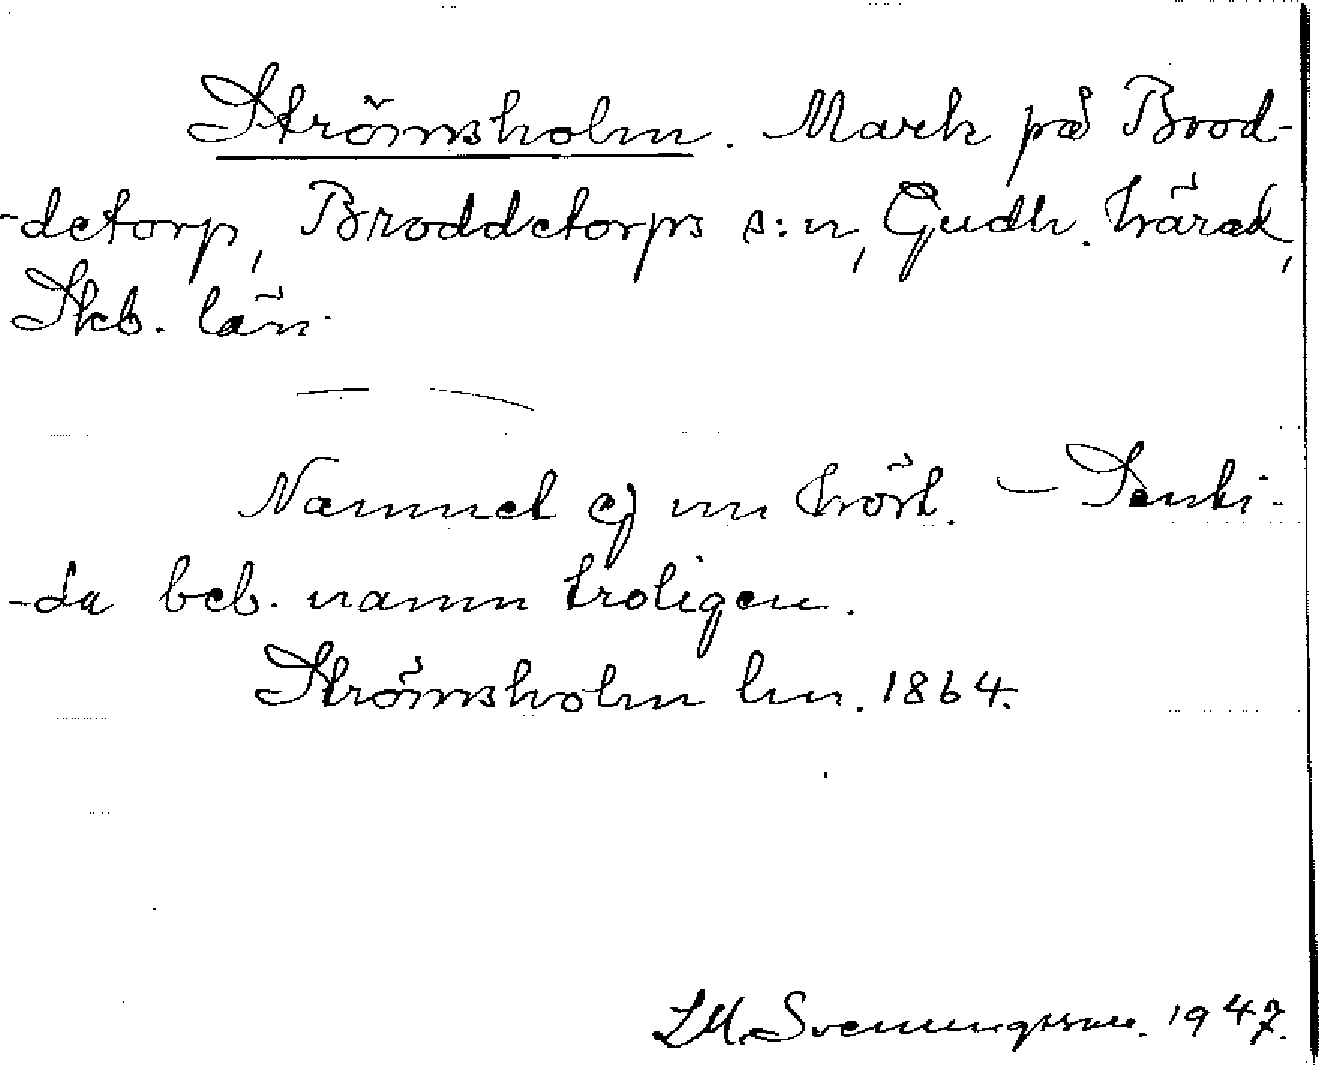 Strömsholm. Mark på Brod-
-detorp, Broddetorps s:n, Gudh. härad,
Skb. län.
Namnet ej nu hört. – Samti-
-da beb. namn troligen.
Strömsholm lm. 1864.
Svenungsson. 1947.